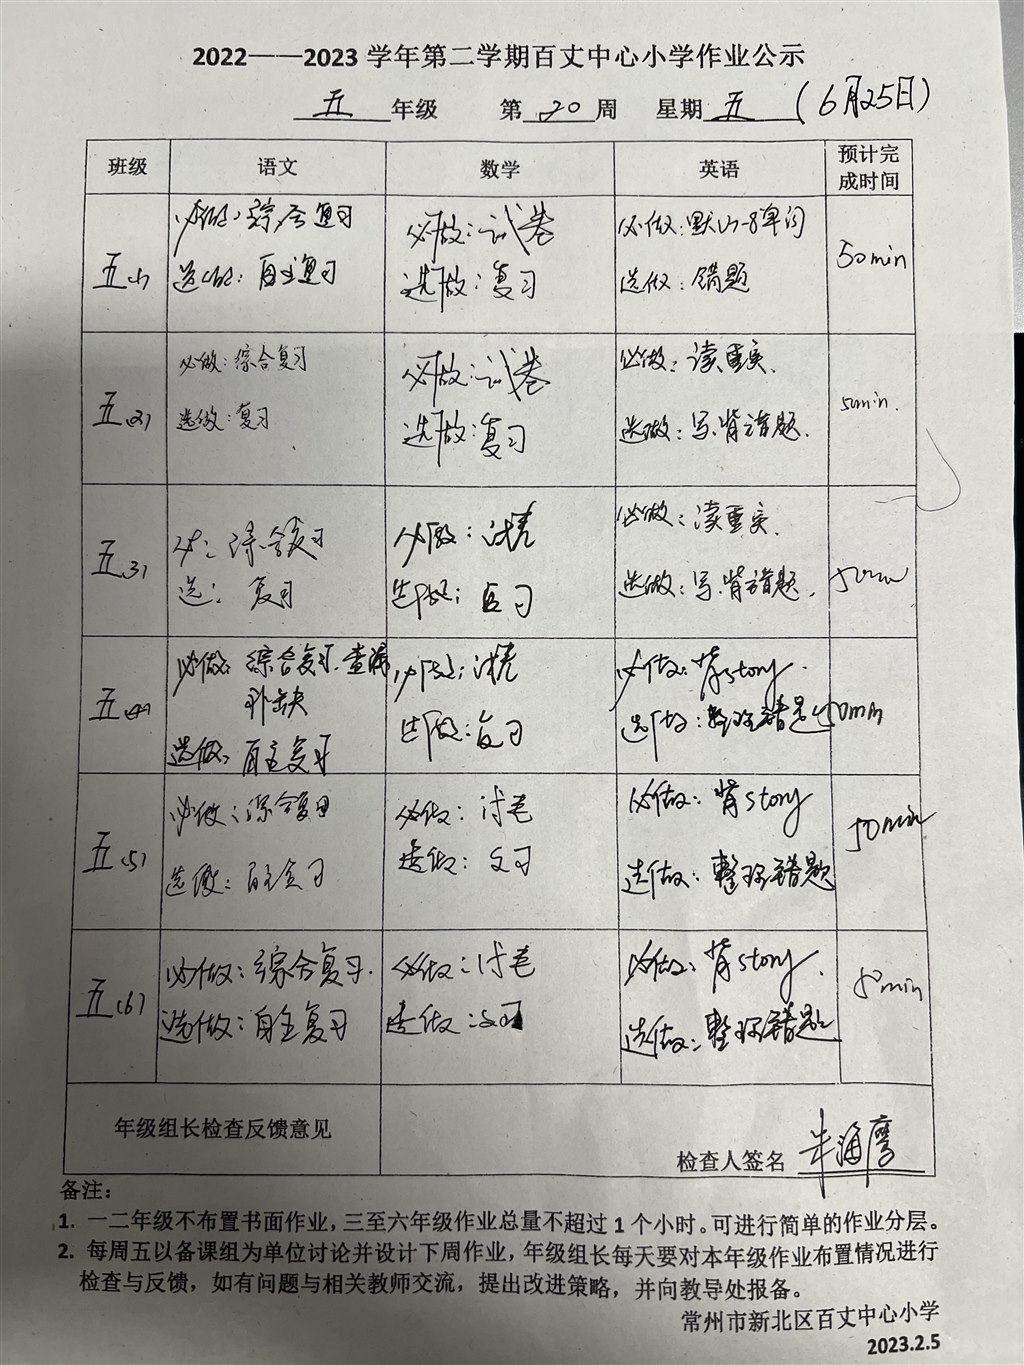 2022——2023 学年第二学期百丈中心小学作业公示
五 年级 第 20 周 星期 五 (6月25日)
班级 语文 数学 英语 预计完成时间
五(1)
必做:综合复习
选做:自主复习
必做:试卷
选做:复习
必做:默U1-8单词
选做:错题
50min
五(2)
必做:综合复习
选做:复习
必做:试卷
选做:复习
必做:读
选做:写.背错题.
50min.
五(3)
必:综合复习
选:复习
必做:试卷
选做:复习
必做:读
选做:写.背错题.
50min
五(4)
必做:综合复习.查漏
补缺
选做:自主复习
必做:试卷
选做:复习
必做:背story.
选做:整理错题
50min
五(5)
必做:综合复习
选做:自主复习
必做:试卷
选做:复习
必做:背story
选做:整理错题
50min
五(6)
必做:综合复习.
选做:自主复习
必做:试卷
选做:复习
必做:背story.
选做:整理错题
50min
年级组长检查反馈意见
检查人签名
备注:
1. 一二年级不布置书面作业,三至六年级作业总量不超过 1 个小时。可进行简单的作业分层。
2. 每周五以备课组为单位讨论并设计下周作业,年级组长每天要对本年级作业布置情况进行
检查与反馈,如有问题与相关教师交流,提出改进策略,并向教导处报备。
常州市新北区百丈中心小学
2023.2.5